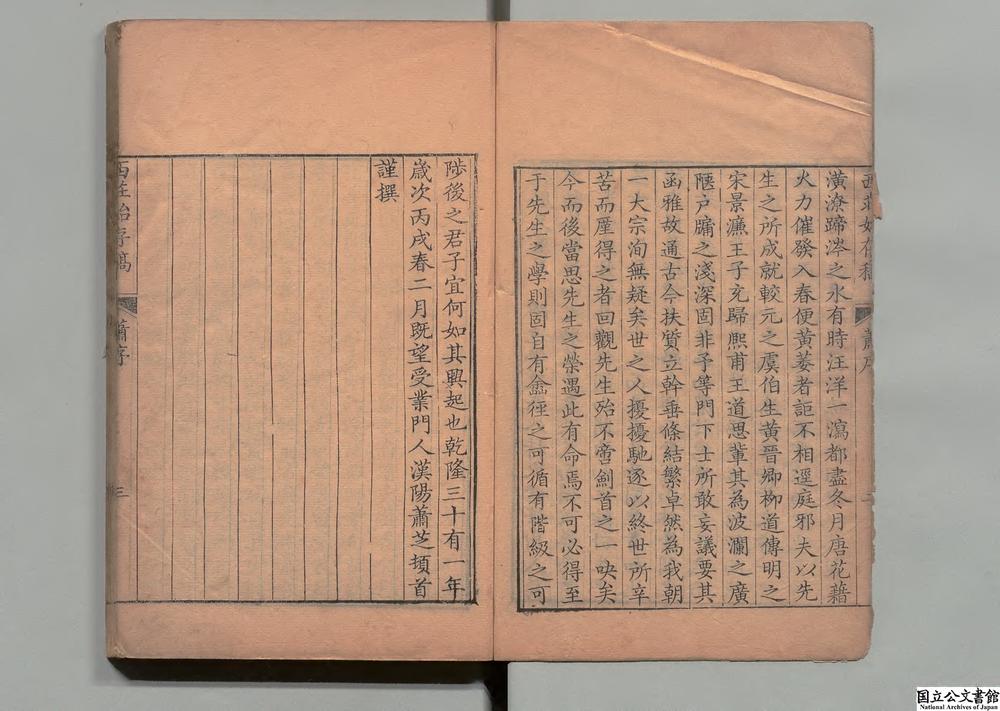 西莊始存稿
蕭序
潢潦蹄涔之水有時汪洋一瀉都盡冬月唐花藉
火力催發入春便黃萎者詎不相逕庭邪夫以先
生之所成就較元之虞伯生黃晉卿柳道傳明之
宋景濂王子充歸熙甫王道思輩其為波瀾之廣
陿戶牖之淺深固非予等門下士所敢妄議要其
函雅故通古今扶質立幹垂條結繁卓然為我朝
一大宗洵無疑矣世之人擾擾馳逐以終世所辛
苦而厪得之者回觀先生殆不啻劍首之一吷矣
今而後當思先生之榮遇此有命焉不可必得至
于先生之學則固自有畲徑之可循有階級之可
陟後之君子宜何如其興起也乾隆三十有一年
歲次丙戌春二月既望受業門人漢陽蕭芝頓首
謹撰
西莊始存稿
蕭序
三
国立公文書館
National Archives of Japan